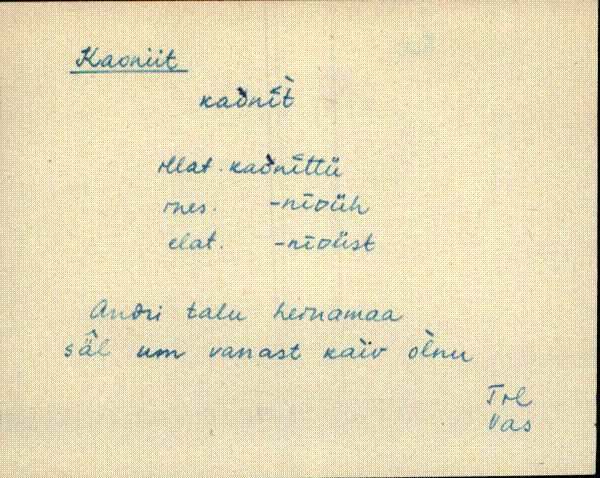 Kaoniit
kaònī̀t
illat. kaònīttü
ines. -nīᴅüh
elat. -nīᴅüst
Andri talu heinamaa
säl um vanast kaiv olnu
Trl
Vas